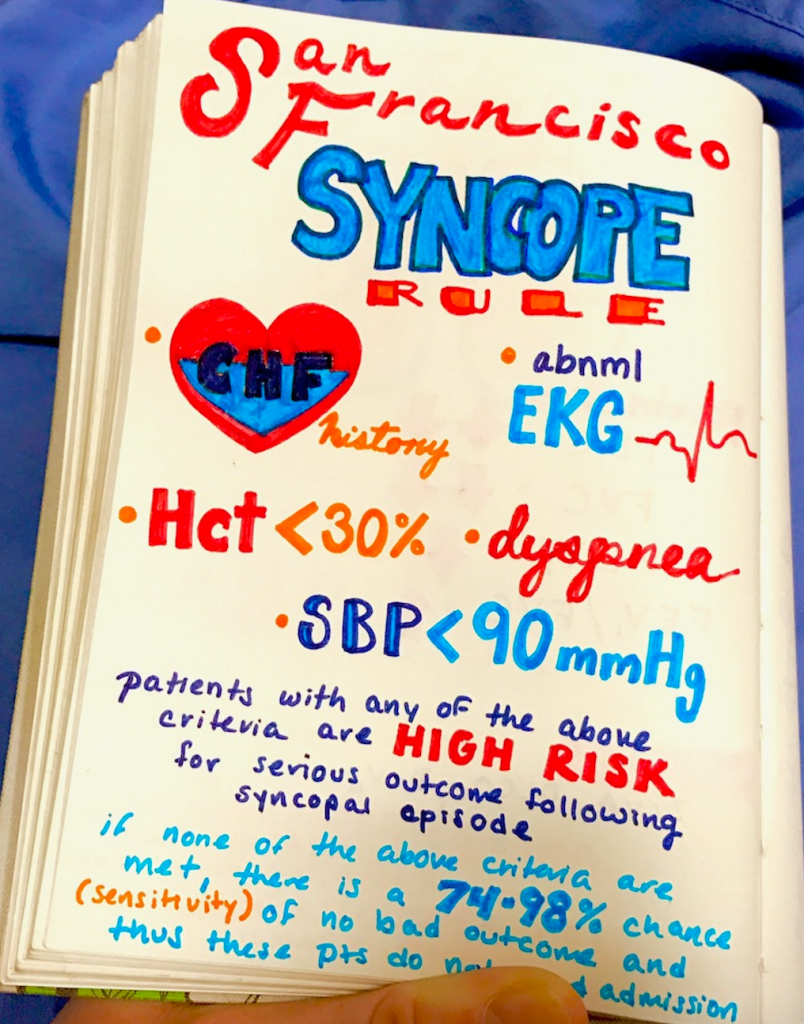 San
Francisco
SYNCOPE
RULE
• CHF
history
• abnml
EKG
• Hct <30%
• dyspnea
• SBP <90mmHg
patients with any of the above
criteria are HIGH RISK
for serious outcome following
syncopal episode
if none of the above criteria are
met, there is a 74-98% chance
(sensitivity) of no bad outcome and
thus these pts do admission